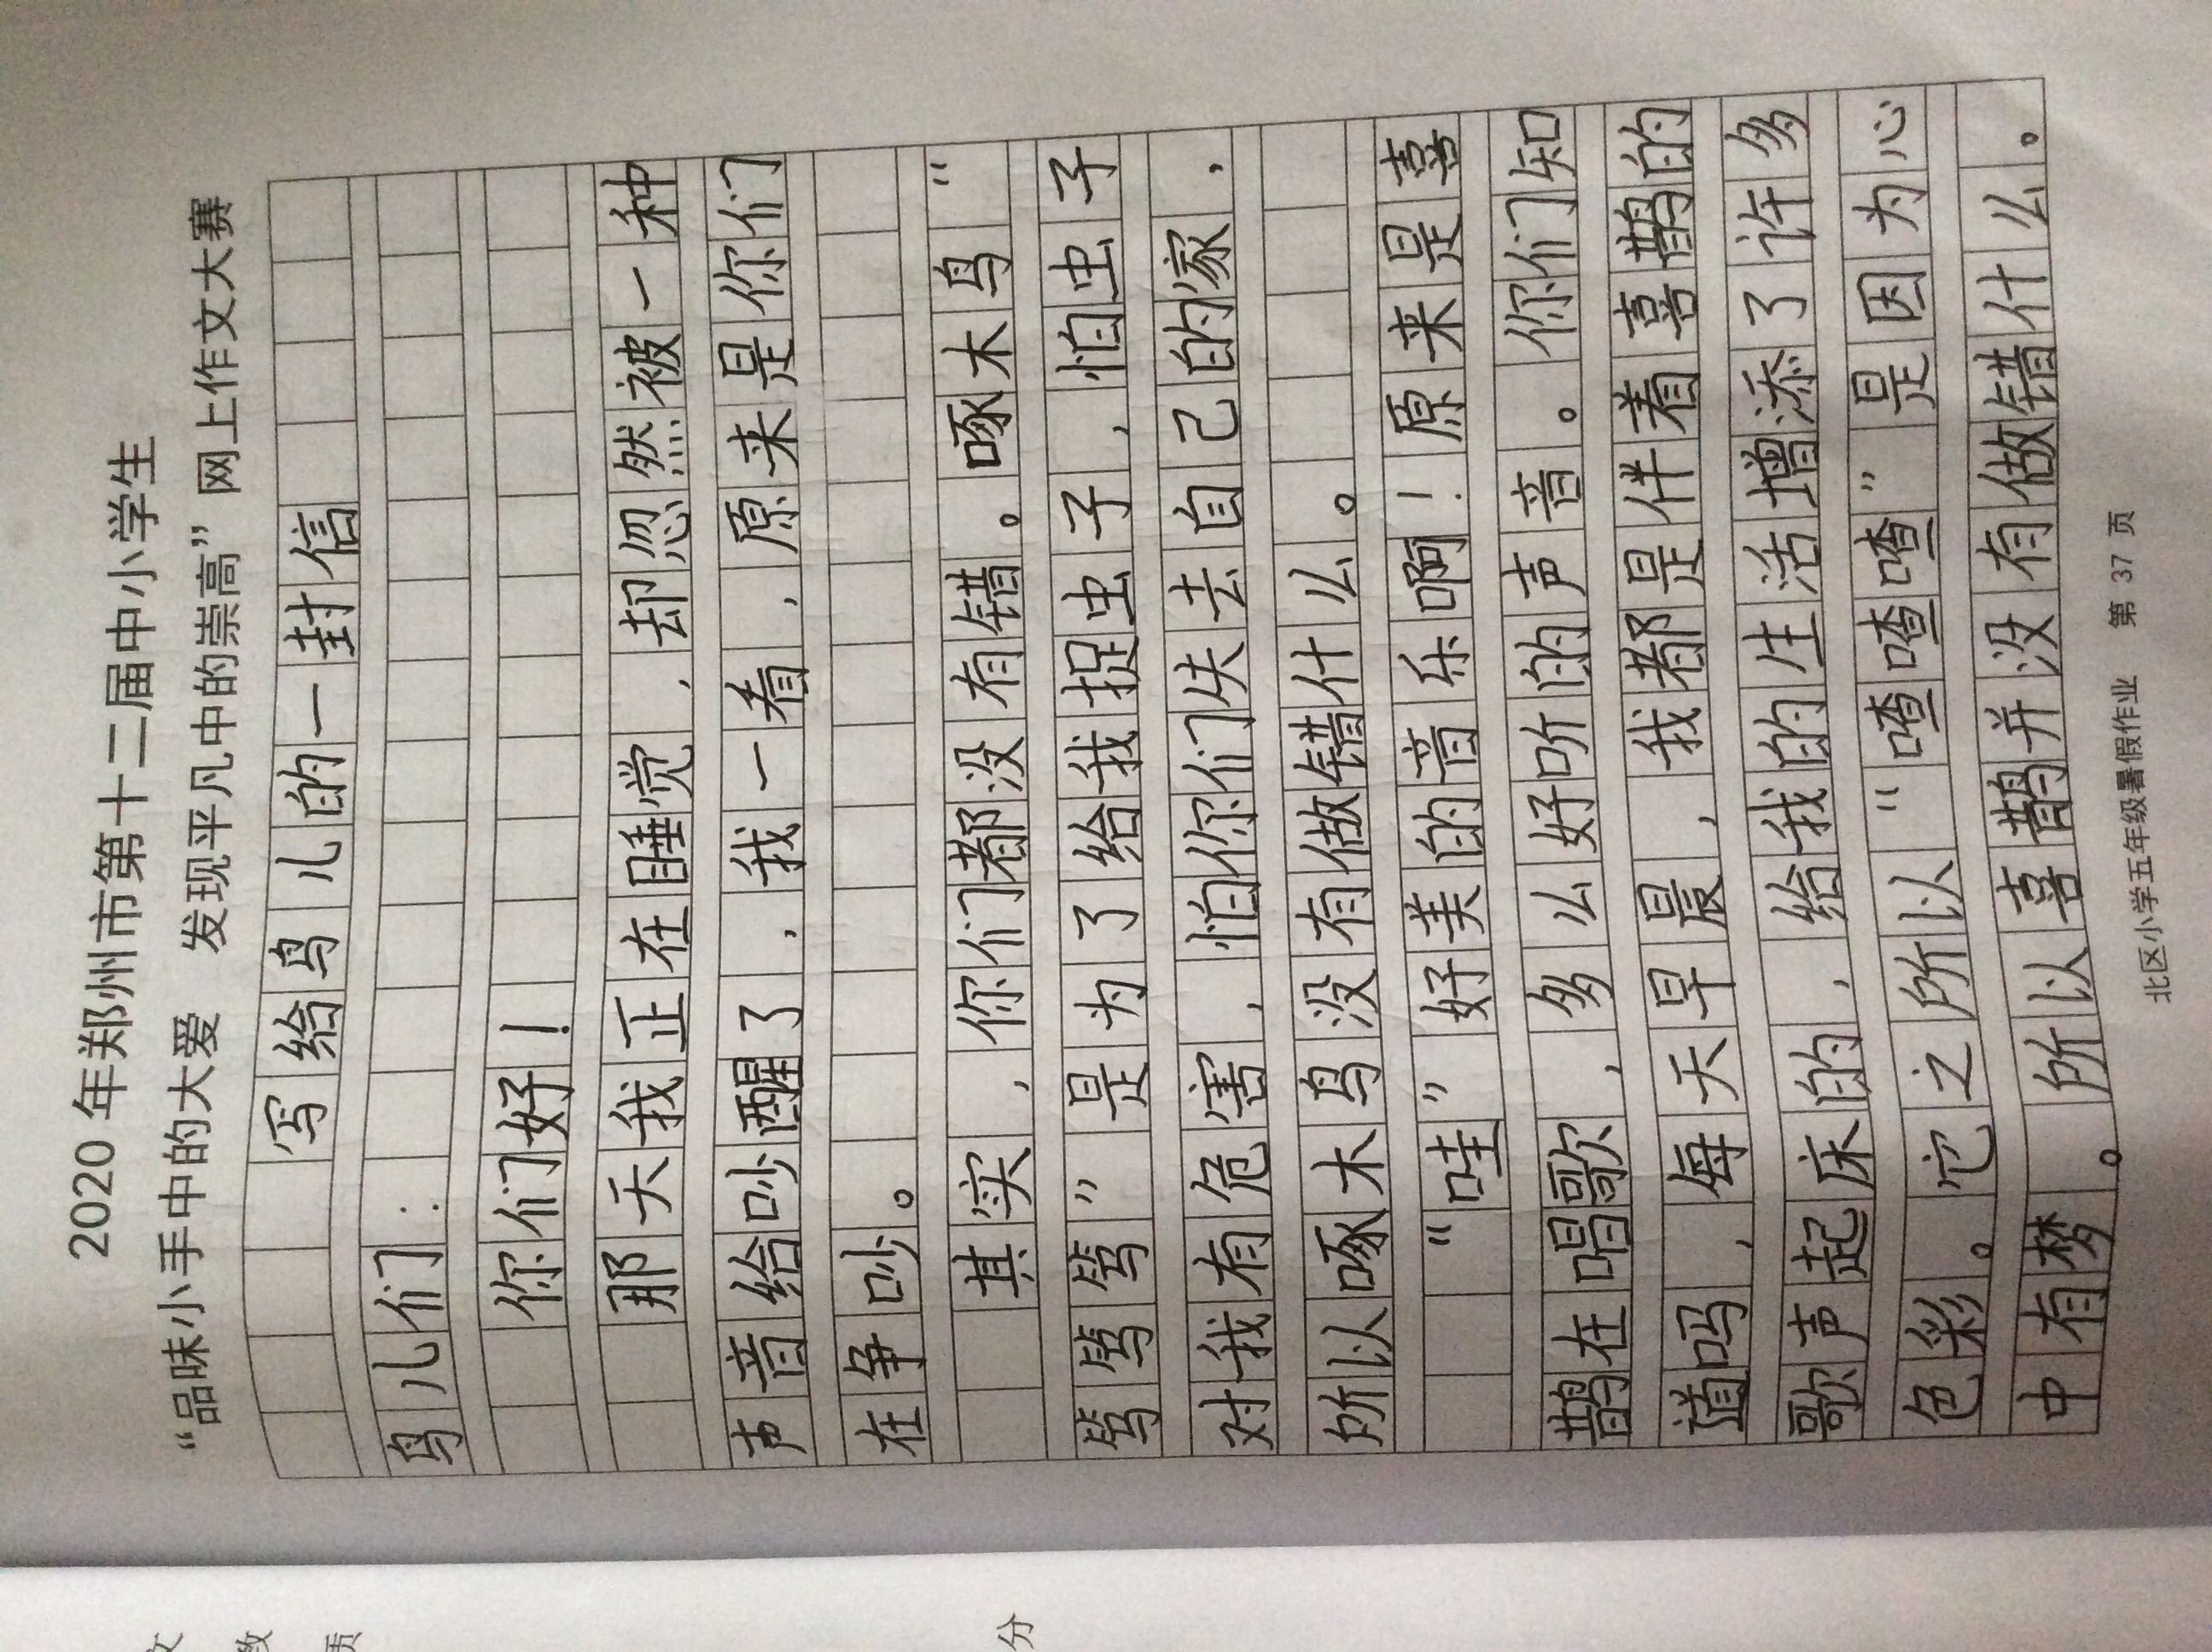 2020 年郑州市第十二届中小学生
“品味小手中的大爱 发现平凡中的崇高”网上作文大赛
写给鸟儿的一封信
鸟儿们：
你们好！
那天我正在睡觉，却忽然被一种
声音给吵醒了，我一看，原来是你们
在争吵。
其实，你们都没有错。啄木鸟“
笃笃笃”是为了给我捉虫子，怕虫子
对我有危害，怕你们失去自己的家，
所以啄木鸟没有做错什么。
“哇”好美的音乐啊！原来是喜
鹊在唱歌，多么好听的声音。你们知
道吗，每天早晨，我都是伴着喜鹊的
歌声起床的，给我的生活增添了许多
色彩。它之所以“喳喳喳”是因为心
中有梦。所以喜鹊并没有做错什么。
北区小学五年级暑假作业 第 37 页
分